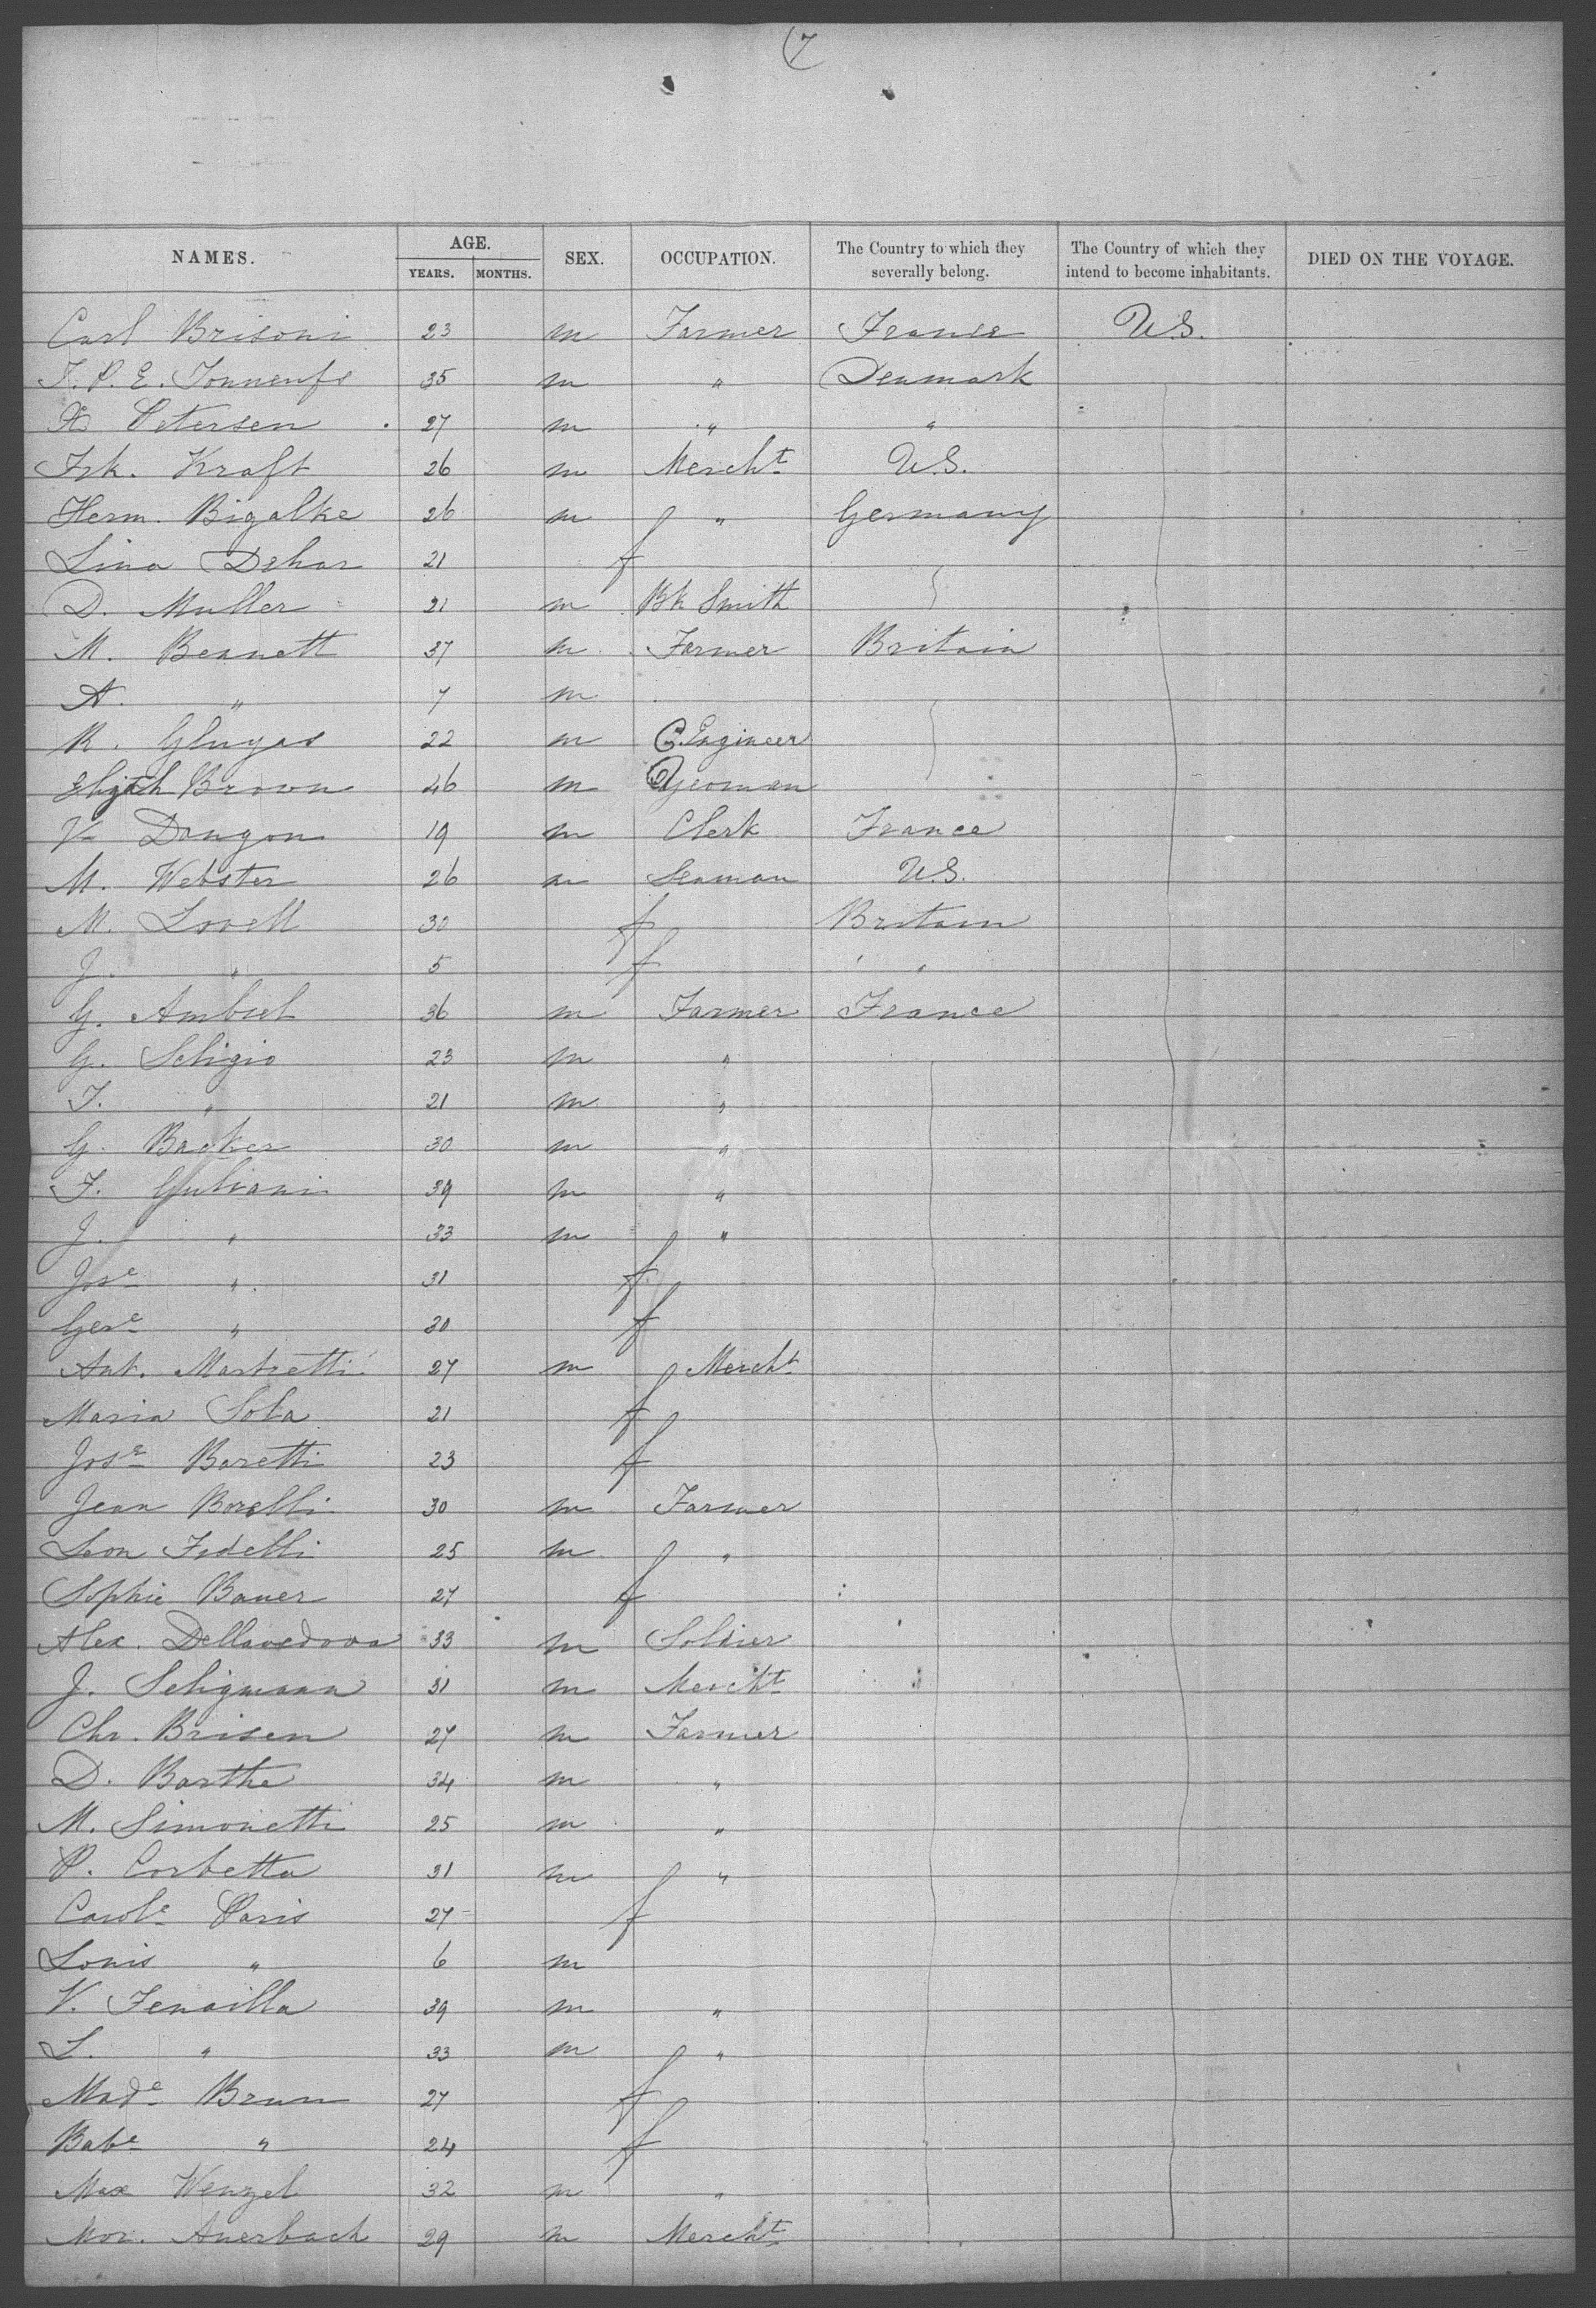 7
NAMES. AGE. YEARS. MONTHS. SEX. OCCUPATION. The Country to which they severally belong. The Country of which they intend to become inhabitants. DIED ON THE VOYAGE.
Carl Brisoni 23 m Farmer France U.S.
35 m " Denmark
Petersen 27 m " "
Frk. Kraft 26 m Mercht U.S.
Herm. Bigalke 26 m " Germany
Lina Dehar 21 f
D. Muller 21 m Bk Smith
M. Bennett 37 m Farmer Britain
A. " 7 m
R. 22 m C. Engineer
Brown 46 m Yeoman
V. Dangon 19 m Clerk France
M. Webster 26 m Seaman U.S.
M. Lovell 30 f Britain
J. " 5 f "
G. Ambiel 36 m Farmer France
G. Seligio 23 m "
F. " 21 m "
G. Backer 30 m "
F. Guliani 39 m "
J. " 33 m "
Jose " 31 f
Gere " 30 f
Ant. Martietti 27 m Mercht
Maria Sola 21 f
Jose Baretti 23 f
Jean Borelli 30 m Farmer
Leon Fidelli 25 m "
Sophie Bauer 27 f
Alex. Dellavedova 33 m Soldier
J. Seligmann 31 m Mercht
Chr. Brisen 27 m Farmer
D. Barthe 34 m "
M. Simonetti 25 m "
P. Corbetta 31 m "
Carole Paris 27 f
Louis " 6 m
V. Fenailla 39 m "
L. " 33 m "
Made Brun 27 f
Babe " 24 f
Max Wenzel 32 m "
Mor. Auerbach 29 m Mercht